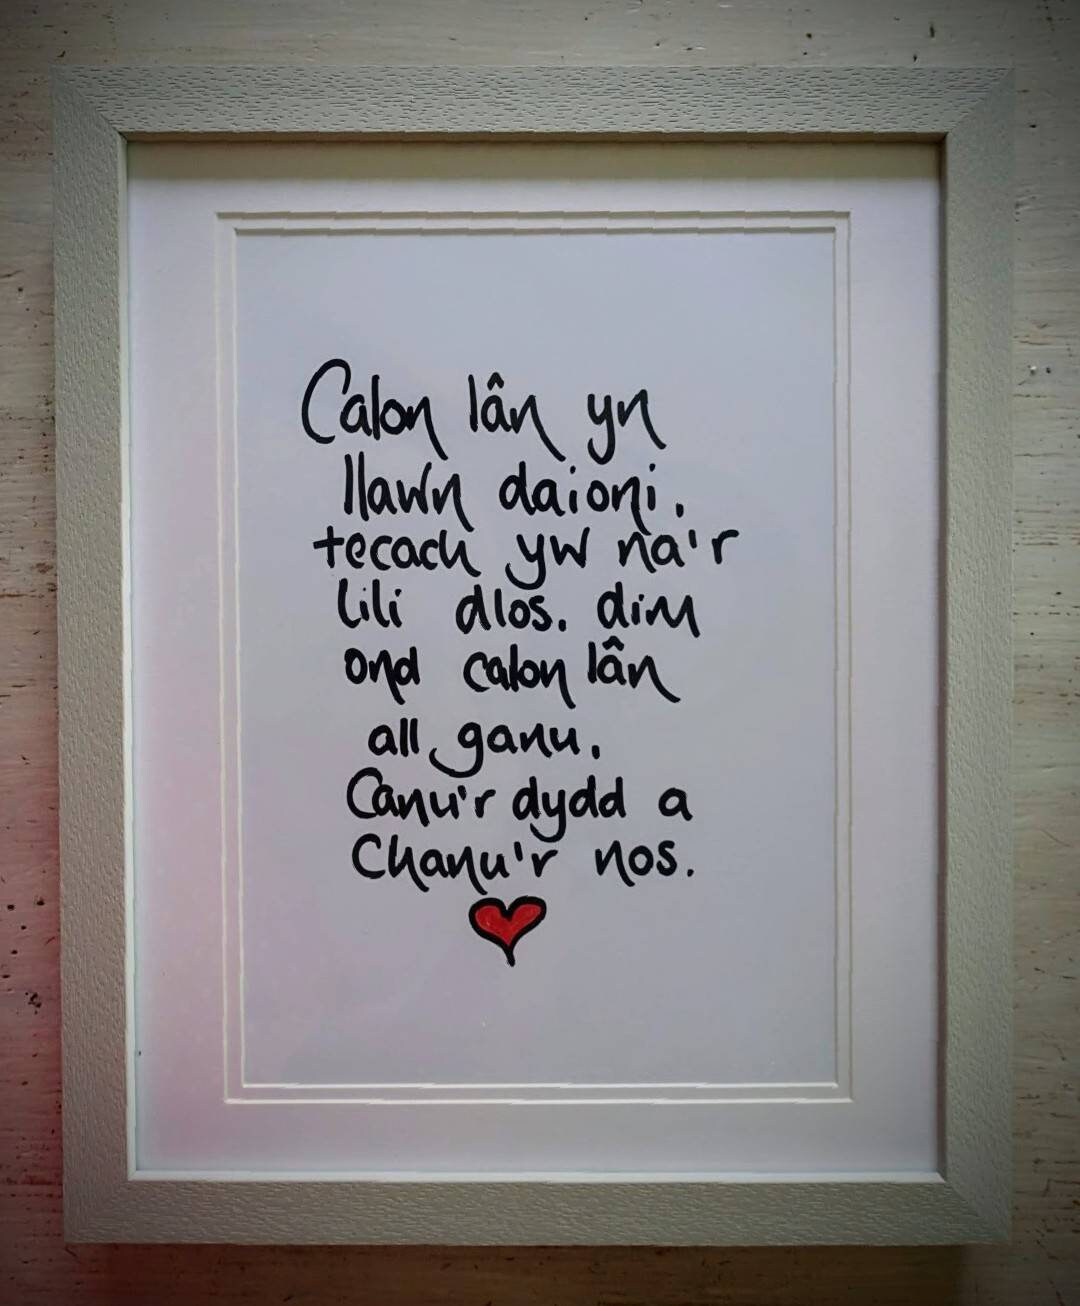 Calon lân yn
llawn daioni.
tecach yw na'r
lili dlos. dim
ond calon lân
all ganu.
Canu'r dydd a
Chanu'r nos.